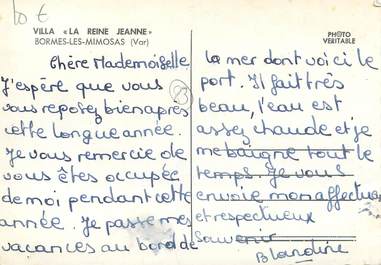 10 t
VILLA « LA REINE JEANNE »
BORMES-LES-MIMOSAS (Var)
PHOTO
VERITABLE
Chère Mademoiselle
J'espère que vous
vous reposez bien après
cette longue année.
Je vous remercie de
vous êtes occupée
de moi pendant cette
année. Je passe mes
vacances au bord de
la mer dont voici le
port. Il fait très
beau, l'eau est
assez chaude et je
me baigne tout le
temps. Je vous
envoie mon affectueux
et respectueux
souvenir
Blandine
23